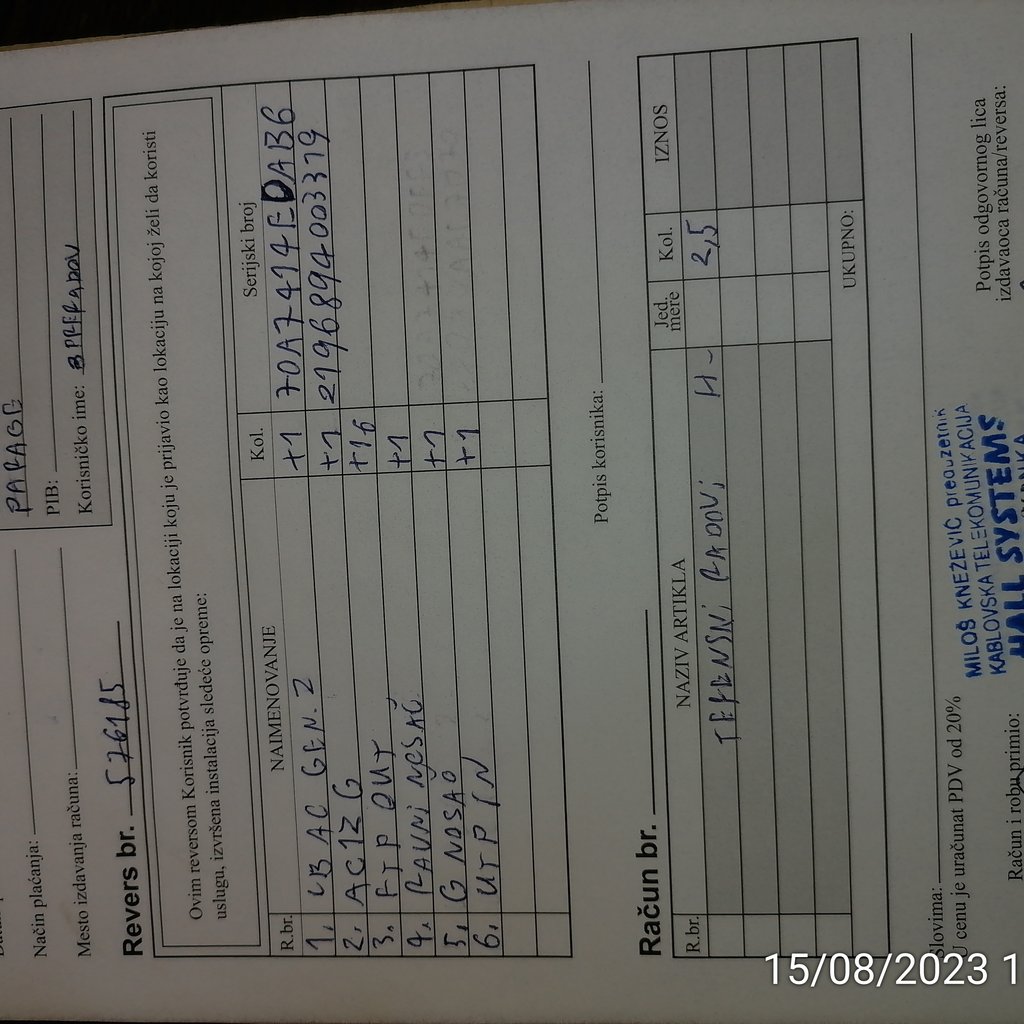 PARAGE
Način plaćanja:
PIB:
Mesto izdavanja računa:
Korisničko ime: BPRERADOV
Revers br. 576185
Ovim reversom Korisnik potvrđuje da je na lokaciji koju je prijavio kao lokaciju na kojoj želi da koristi
uslugu, izvršena instalacija sledeće opreme:
R.br. NAIMENOVANJE Kol. Serijski broj
1. LB AC GEN. 2 +1 70A7414EDAB6
2. AC12 G +1 2196894003319
3. FTP OUT +16
4. RAVNI NOSAČ +1
5. G NOSAČ +1
6. UTP IN +1
Potpis korisnika:
Račun br.
R.br. NAZIV ARTIKLA Jed. mere Kol. IZNOS
TERENSKI RADOVI H- 2,5
UKUPNO:
Slovima:
U cenu je uračunat PDV od 20%
MILOŠ KNEŽEVIĆ preduzetnik
KABLOVSKA TELEKOMUNIKACIJA
HALL SYSTEMS
Račun i robu primio:
Potpis odgovornog lica
izdavaoca računa/reversa:
15/08/2023 1